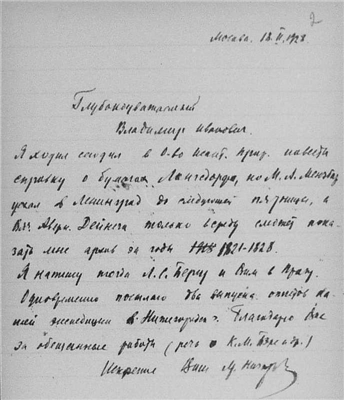 2
Москва. 18.VI.1928.
Глубокоуважаемый
Владимир Иванович.
Я ходил сегодня в О-во Испыт. Прир. навести
справку о бумагах Лангсдорфа, но М. А. Мензбир
уехал в Ленинград до следующей пятницы, а
Дейнега только в среду сможет пока-
зать мне архив за годы 1821-1828.
Я напишу тогда Л. С. Бергу и Вам в Прагу.
Одновременно посылаю два выпуска отчетов на-
шей экспедиции в Нижегородск. г. Благодарю Вас
за обещанные работы (речь о К. М. Бэре и др.)
Искренне Ваш